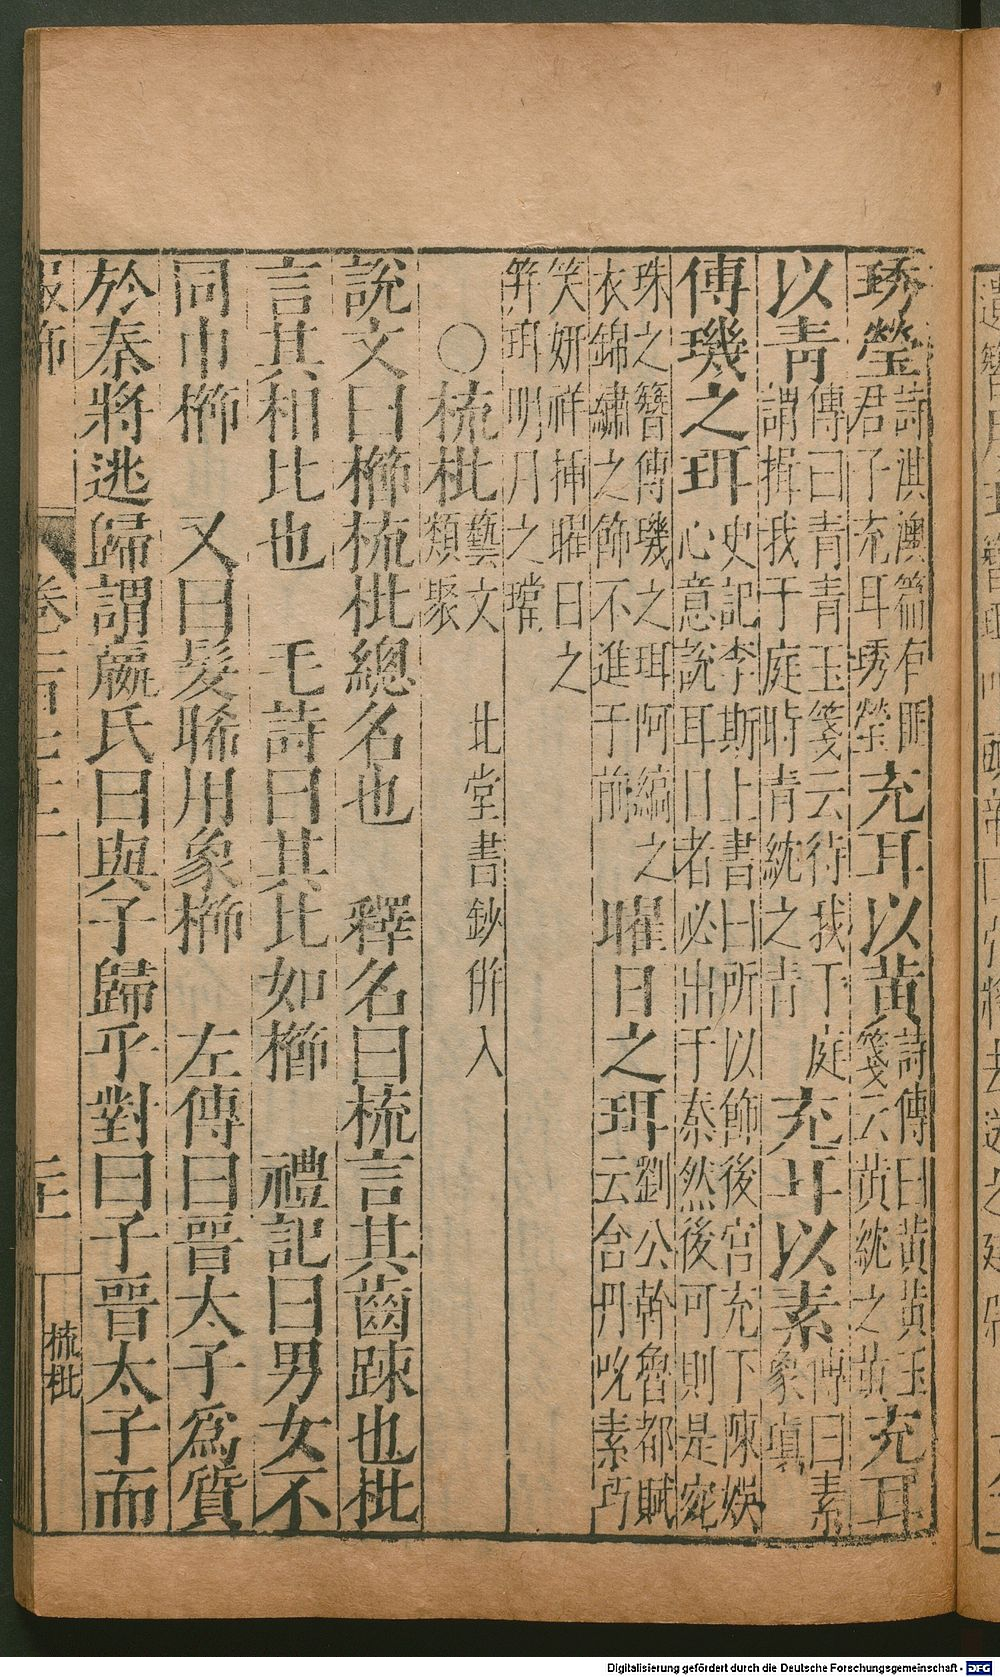 琇瑩詩淇澳篇有匪君子充耳琇瑩充耳以黃詩傳曰黃黃玉箋云黃紞之黃充耳
以青傳曰青青玉箋云待我于庭謂揖我于庭時青紞之青充耳以素傳曰素象瑱
傅璣之珥史記李斯上書曰所以飾後宮充下陳娛心意說耳目者必出于秦然後可則是宛
珠之簪傅璣之珥阿縞之衣錦繡之飾不進于前曜日之珥劉公幹魯都賦云含丹吮素巧
笑妍祥插曜日之笄珥明月之璫
○梳枇藝文類聚 北堂書鈔併入
說文曰櫛梳枇總名也 釋名曰梳言其齒踈也枇
言其相比也 毛詩曰其比如櫛 禮記曰男女不
同巾櫛 又曰髮晞用象櫛 左傳曰晉太子爲質
於秦將逃歸謂嬴氏曰與子歸乎對曰子晉太子而
服飾
梳枇
Digitalisierung gefördert durch die Deutsche Forschungsgemeinschaft - DFG